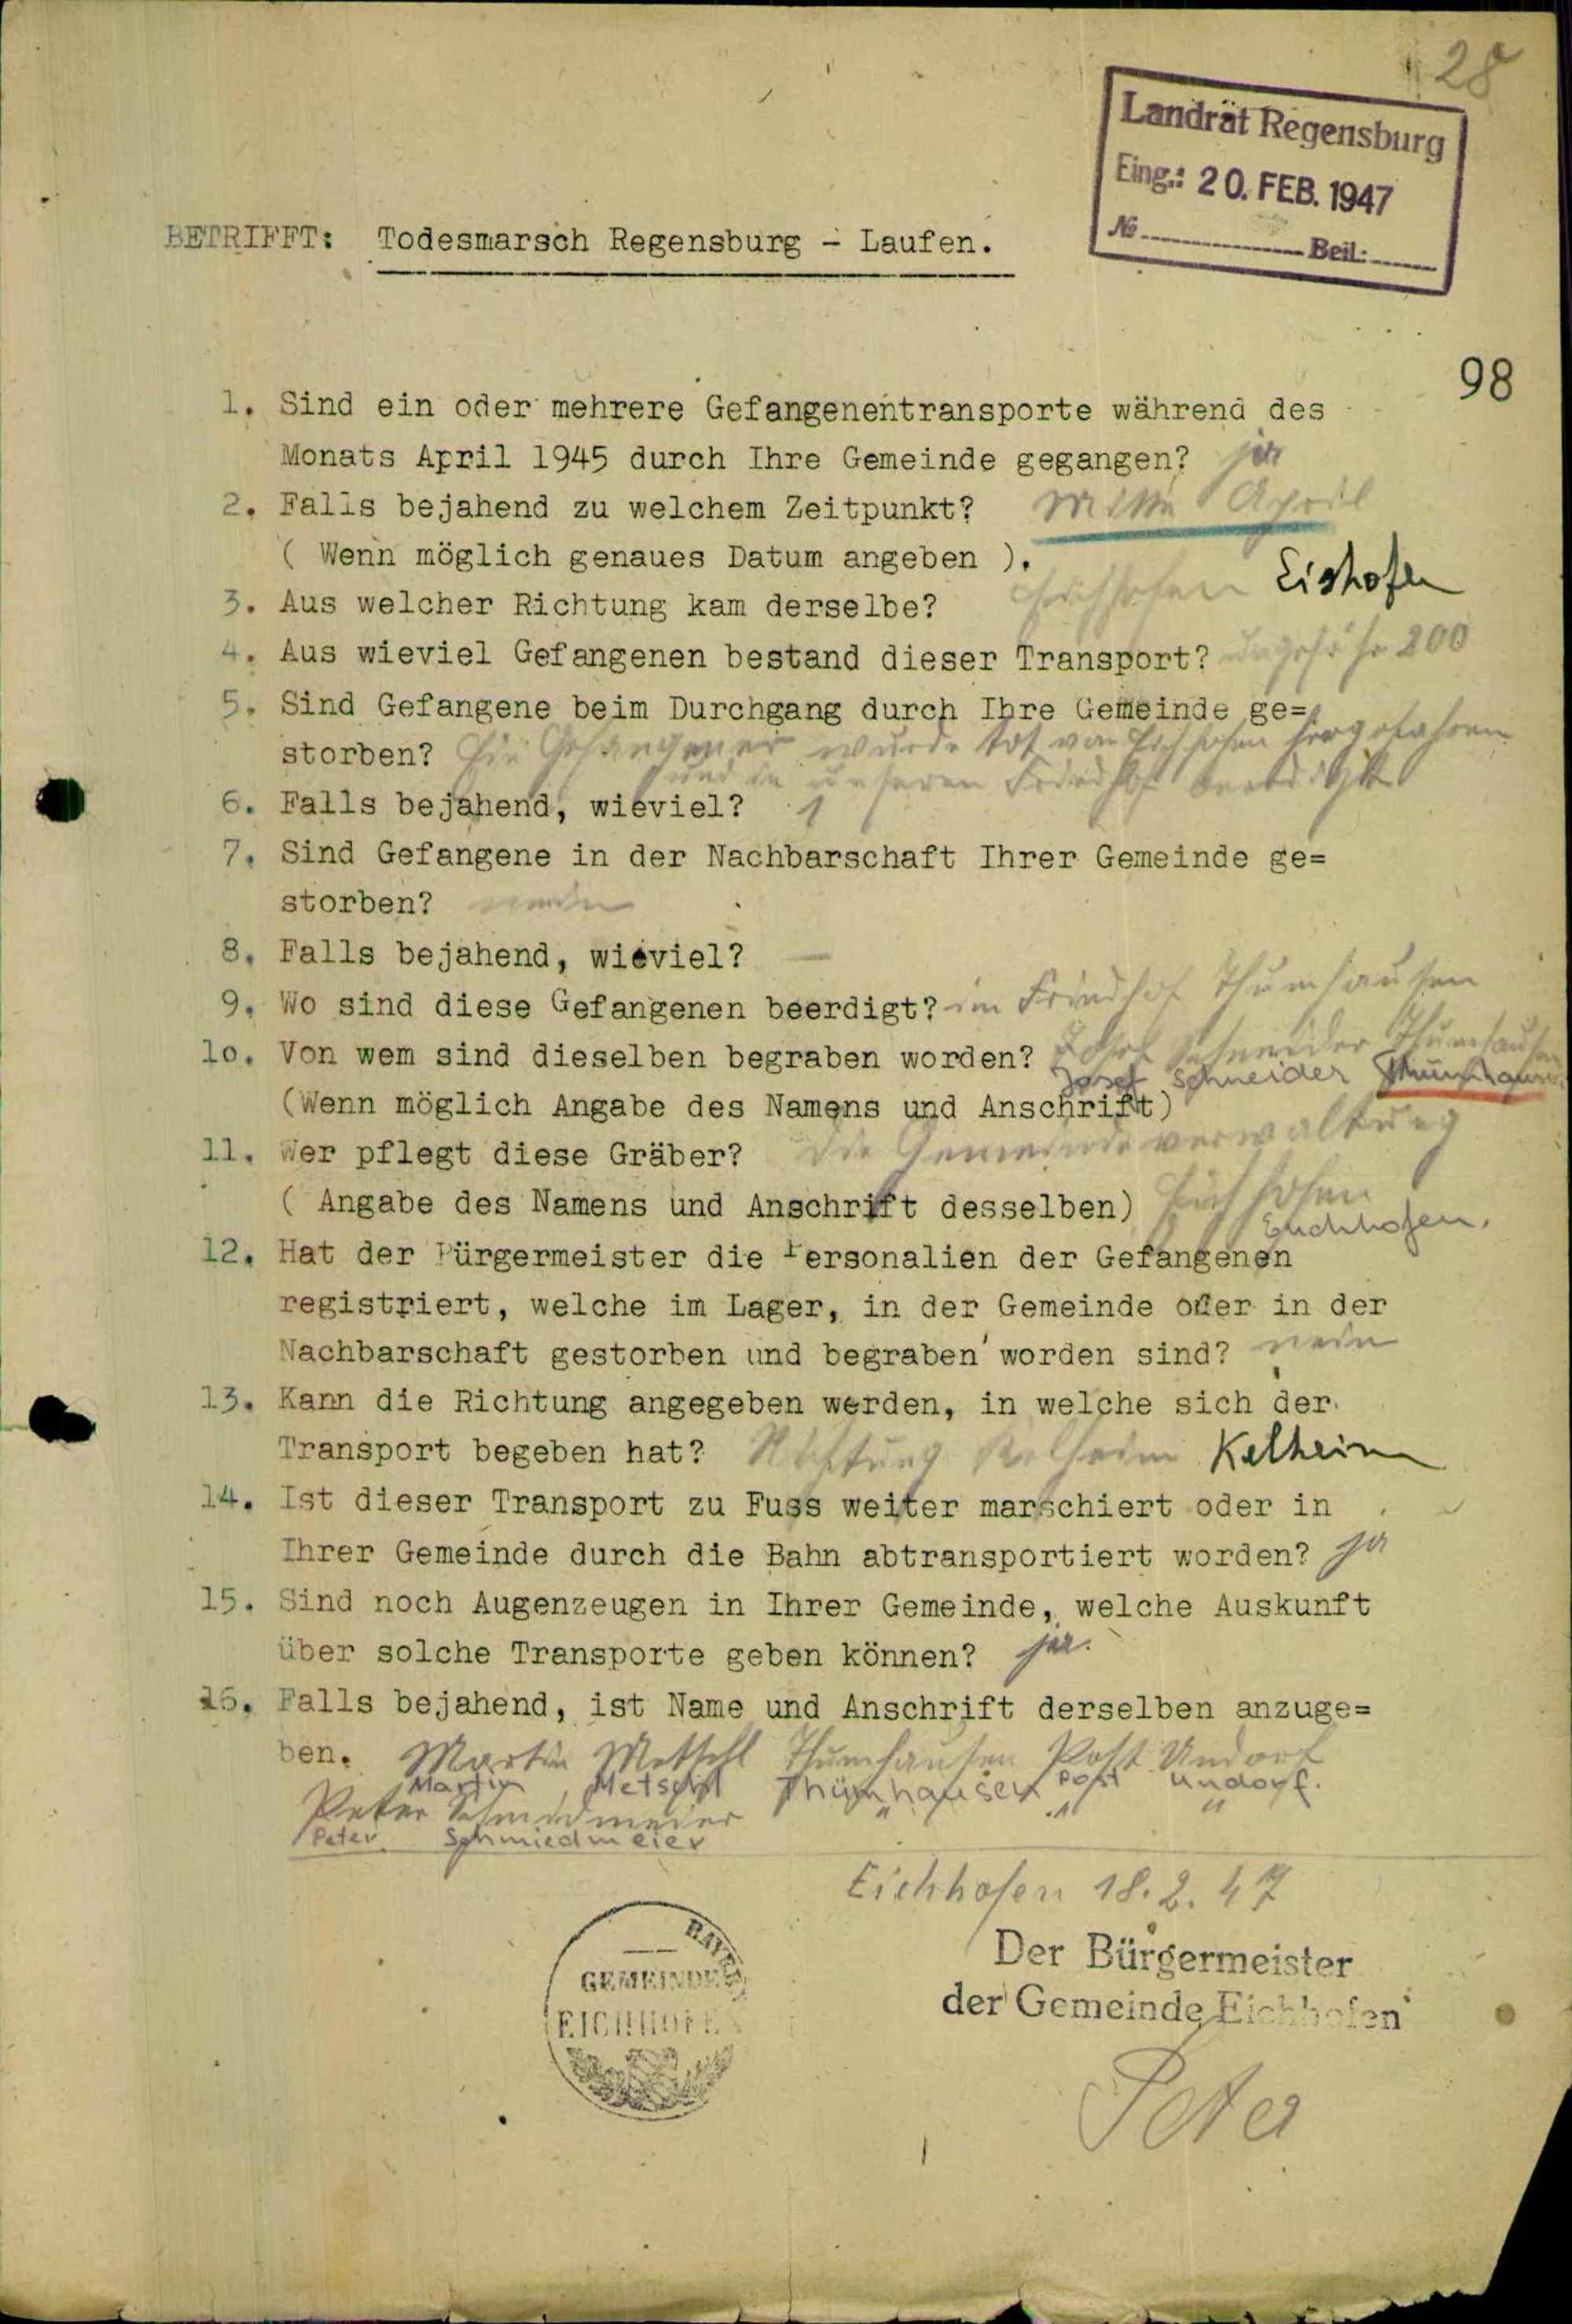 28
Landrät Regensburg
Eing.: 20. FEB. 1947
№ Beil.:
BETRIFFT: Todesmarsch Regensburg - Laufen.
98
1. Sind ein oder mehrere Gefangenentransporte während des
Monats April 1945 durch Ihre Gemeinde gegangen? ja
2. Falls bejahend zu welchem Zeitpunkt? Mitte April
( Wenn möglich genaues Datum angeben ).
3. Aus welcher Richtung kam derselbe? Eichhofen Eishofen
4. Aus wieviel Gefangenen bestand dieser Transport? ungefähr 200
5. Sind Gefangene beim Durchgang durch Ihre Gemeinde ge=
storben? Ein Gefangener wurde tot von Eichhofen hergefahren
und in unseren Friedhof beerdigt
6. Falls bejahend, wieviel? 1
7. Sind Gefangene in der Nachbarschaft Ihrer Gemeinde ge=
storben? nein
8. Falls bejahend, wieviel? —
9. Wo sind diese Gefangenen beerdigt? im Friedhof Thumhausen
10. Von wem sind dieselben begraben worden? Josef Schneider Thumhausen
Josef Schneider Thümhausen
(Wenn möglich Angabe des Namens und Anschrift)
11. Wer pflegt diese Gräber? Die Gemeindeverwaltung
( Angabe des Namens und Anschrift desselben) Eichhofen
Euchhofen.
12. Hat der Bürgermeister die Personalien der Gefangenen
registriert, welche im Lager, in der Gemeinde oder in der
Nachbarschaft gestorben und begraben worden sind? nein
13. Kann die Richtung angegeben werden, in welche sich der
Transport begeben hat? Richtung Kelheim Kelheim
14. Ist dieser Transport zu Fuss weiter marschiert oder in
Ihrer Gemeinde durch die Bahn abtransportiert worden? ja
15. Sind noch Augenzeugen in Ihrer Gemeinde, welche Auskunft
über solche Transporte geben können? ja.
16. Falls bejahend, ist Name und Anschrift derselben anzuge=
ben. Martin Metschl Thumhausen Post Undorf
Martin Metschl Thümhausen Post Undorf.
Peter Schmidmeier " " "
Peter Schmiedmeier
Eichhofen 18.2.47
BAYERN
GEMEINDE
EICHHOFEN
Der Bürgermeister
der Gemeinde Eichhofen